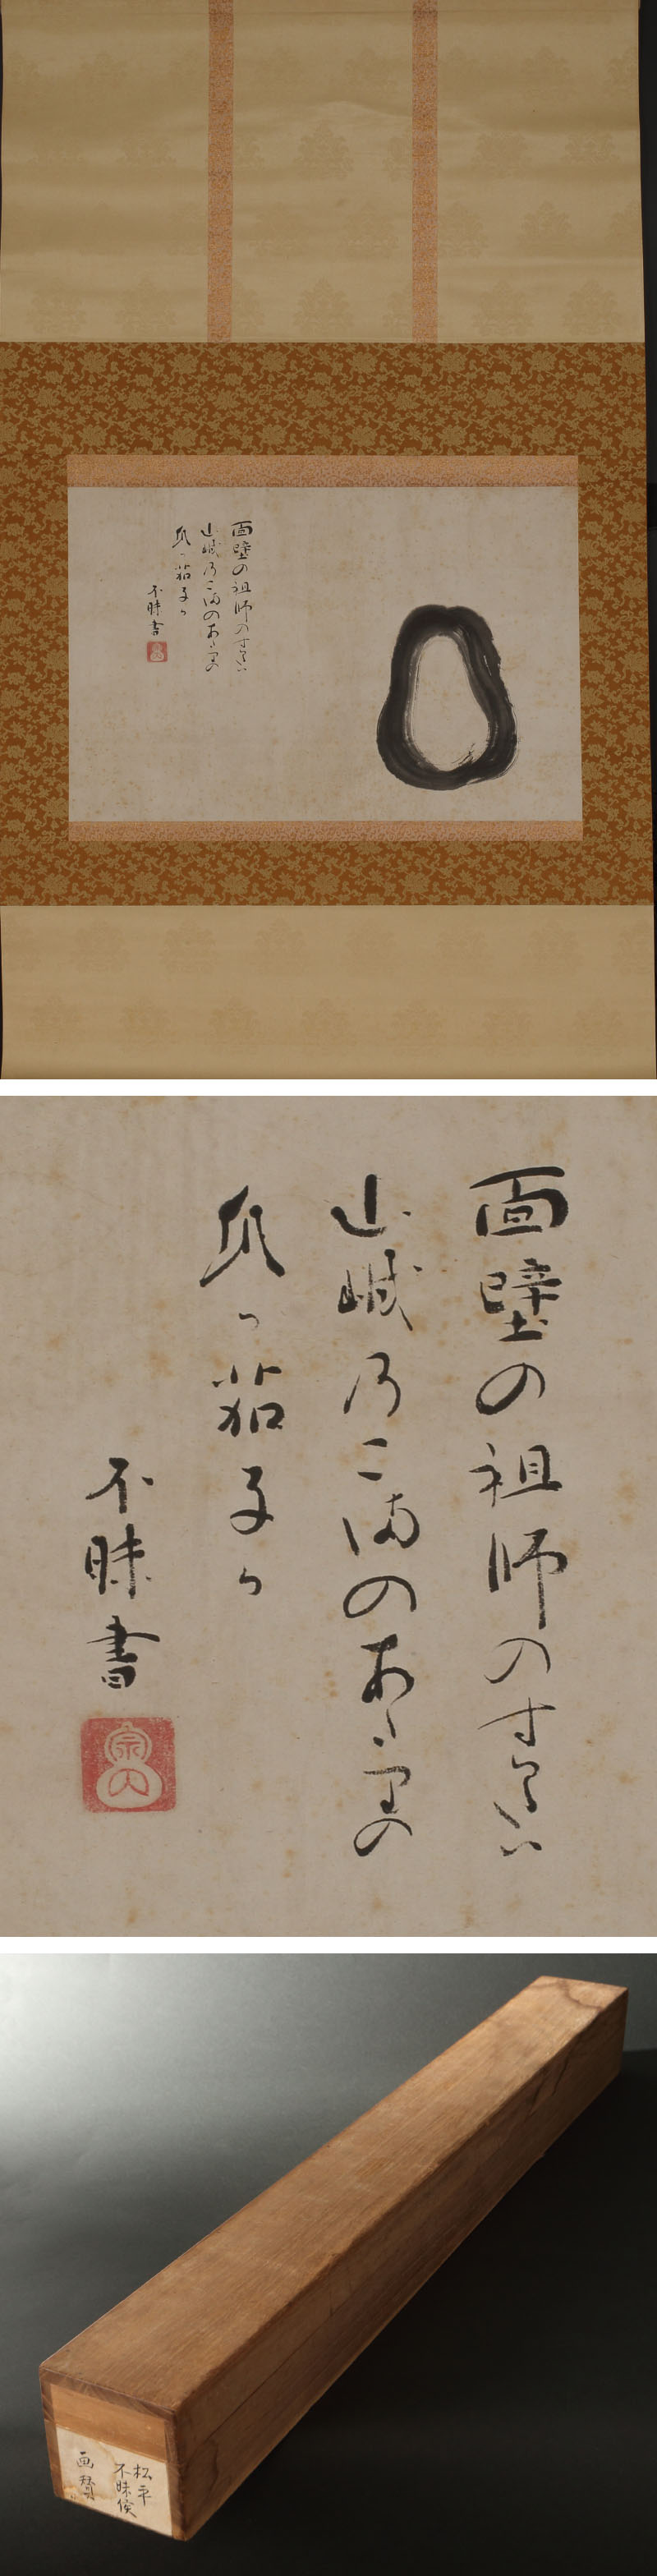 面壁の祖師のすかたハ
山城乃こ満のあたりの
瓜か茄子か
不昧書
面壁の祖師のすかたハ
山城乃こ満のあたりの
瓜か茄子か
不昧書
松平
不昧侯
画賛